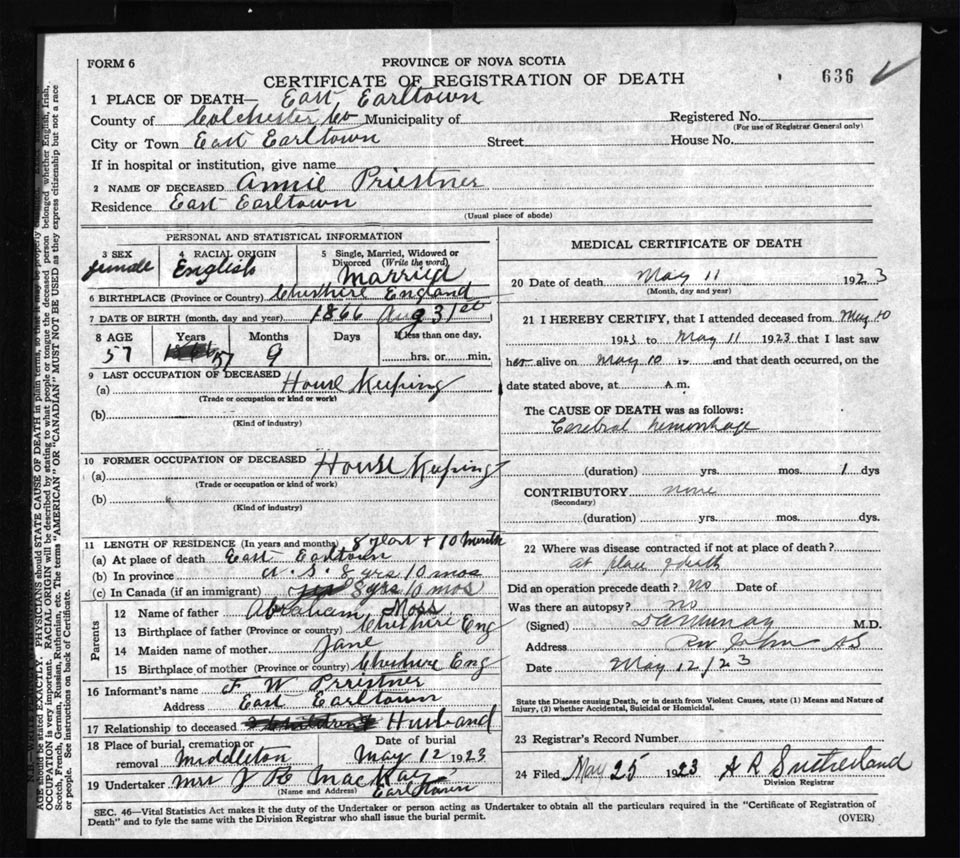 FORM 6
PROVINCE OF NOVA SCOTIA
CERTIFICATE OF REGISTRATION OF DEATH
636
1 PLACE OF DEATH— East Earltown
County of Colchester Co Municipality of
Registered No.
(For use of Registrar General only)
City or Town East Earltown Street House No.
If in hospital or institution, give name
2 NAME OF DECEASED Annie Priestner
Residence East Earltown
(Usual place of abode)
PERSONAL AND STATISTICAL INFORMATION
3 SEX female
4 RACIAL ORIGIN English
5 Single, Married, Widowed or Divorced (Write the word) Married
6 BIRTHPLACE (Province or Country) Cheshire England
7 DATE OF BIRTH (month, day and year) 1866 Aug 31st
8 AGE Years Months Days If less than one day,
57 57 9 hrs. or min.
9 LAST OCCUPATION OF DECEASED
(a) House Keeping
(Trade or occupation or kind or work)
(b)
(Kind of industry)
10 FORMER OCCUPATION OF DECEASED
(a) House Keeping
(Trade or occupation or kind or work)
(b)
(Kind of industry)
11 LENGTH OF RESIDENCE (In years and months) 8 years + 10 month
(a) At place of death East Earltown
(b) In province N. S. 8 yrs 10 mos
(c) In Canada (if an immigrant) 8 yrs 10 mos
Parents
12 Name of father Abraham Moss
13 Birthplace of father (Province or country) Cheshire Eng
14 Maiden name of mother Jane
15 Birthplace of mother (Province or country) Cheshire Eng
16 Informant's name F W Priestner
Address East Earltown
17 Relationship to deceased Husband
18 Place of burial, cremation or removal Middleton
Date of burial May 12 1923
19 Undertaker Mrs J R MacKay Earltown
(Name and Address)
MEDICAL CERTIFICATE OF DEATH
20 Date of death May 11 1923
(Month, day and year)
21 I HEREBY CERTIFY, that I attended deceased from May 10
1923 to May 11 1923 that I last saw
her alive on May 10 19 and that death occurred, on the
date stated above, at A.m.
The CAUSE OF DEATH was as follows:
Cerebral hemorrhage
(duration) yrs. mos. 1 dys
CONTRIBUTORY none
(Secondary)
(duration) yrs. mos. dys.
22 Where was disease contracted if not at place of death?
at place of death
Did an operation precede death? no Date of
Was there an autopsy? no
(Signed) D A Murray M.D.
Address Riv John NS
Date May 12/23
State the Disease causing Death, or in death from Violent Causes, state (1) Means and Nature of
Injury, (2) whether Accidental, Suicidal or Homicidal.
23 Registrar's Record Number
24 Filed May 25 1923 A R Sutherland
Division Registrar
SEC. 46—Vital Statistics Act makes it the duty of the Undertaker or person acting as Undertaker to obtain all the particulars required in the "Certificate of Registration of
Death" and to fyle the same with the Division Registrar who shall issue the burial permit.
(OVER)
AGE should be stated EXACTLY. PHYSICIANS should STATE CAUSE OF DEATH in plain terms, so that it may be properly
OCCUPATION is very important. RACIAL ORIGIN will be described by stating to what people or tongue the deceased person belonged whether English, Irish,
Scotch, French, German, Russian, Ruthenian, etc. The terms "AMERICAN" OR "CANADIAN" MUST NOT BE USED as they express citizenship but not a race
or people. See instructions on back of Certificate.